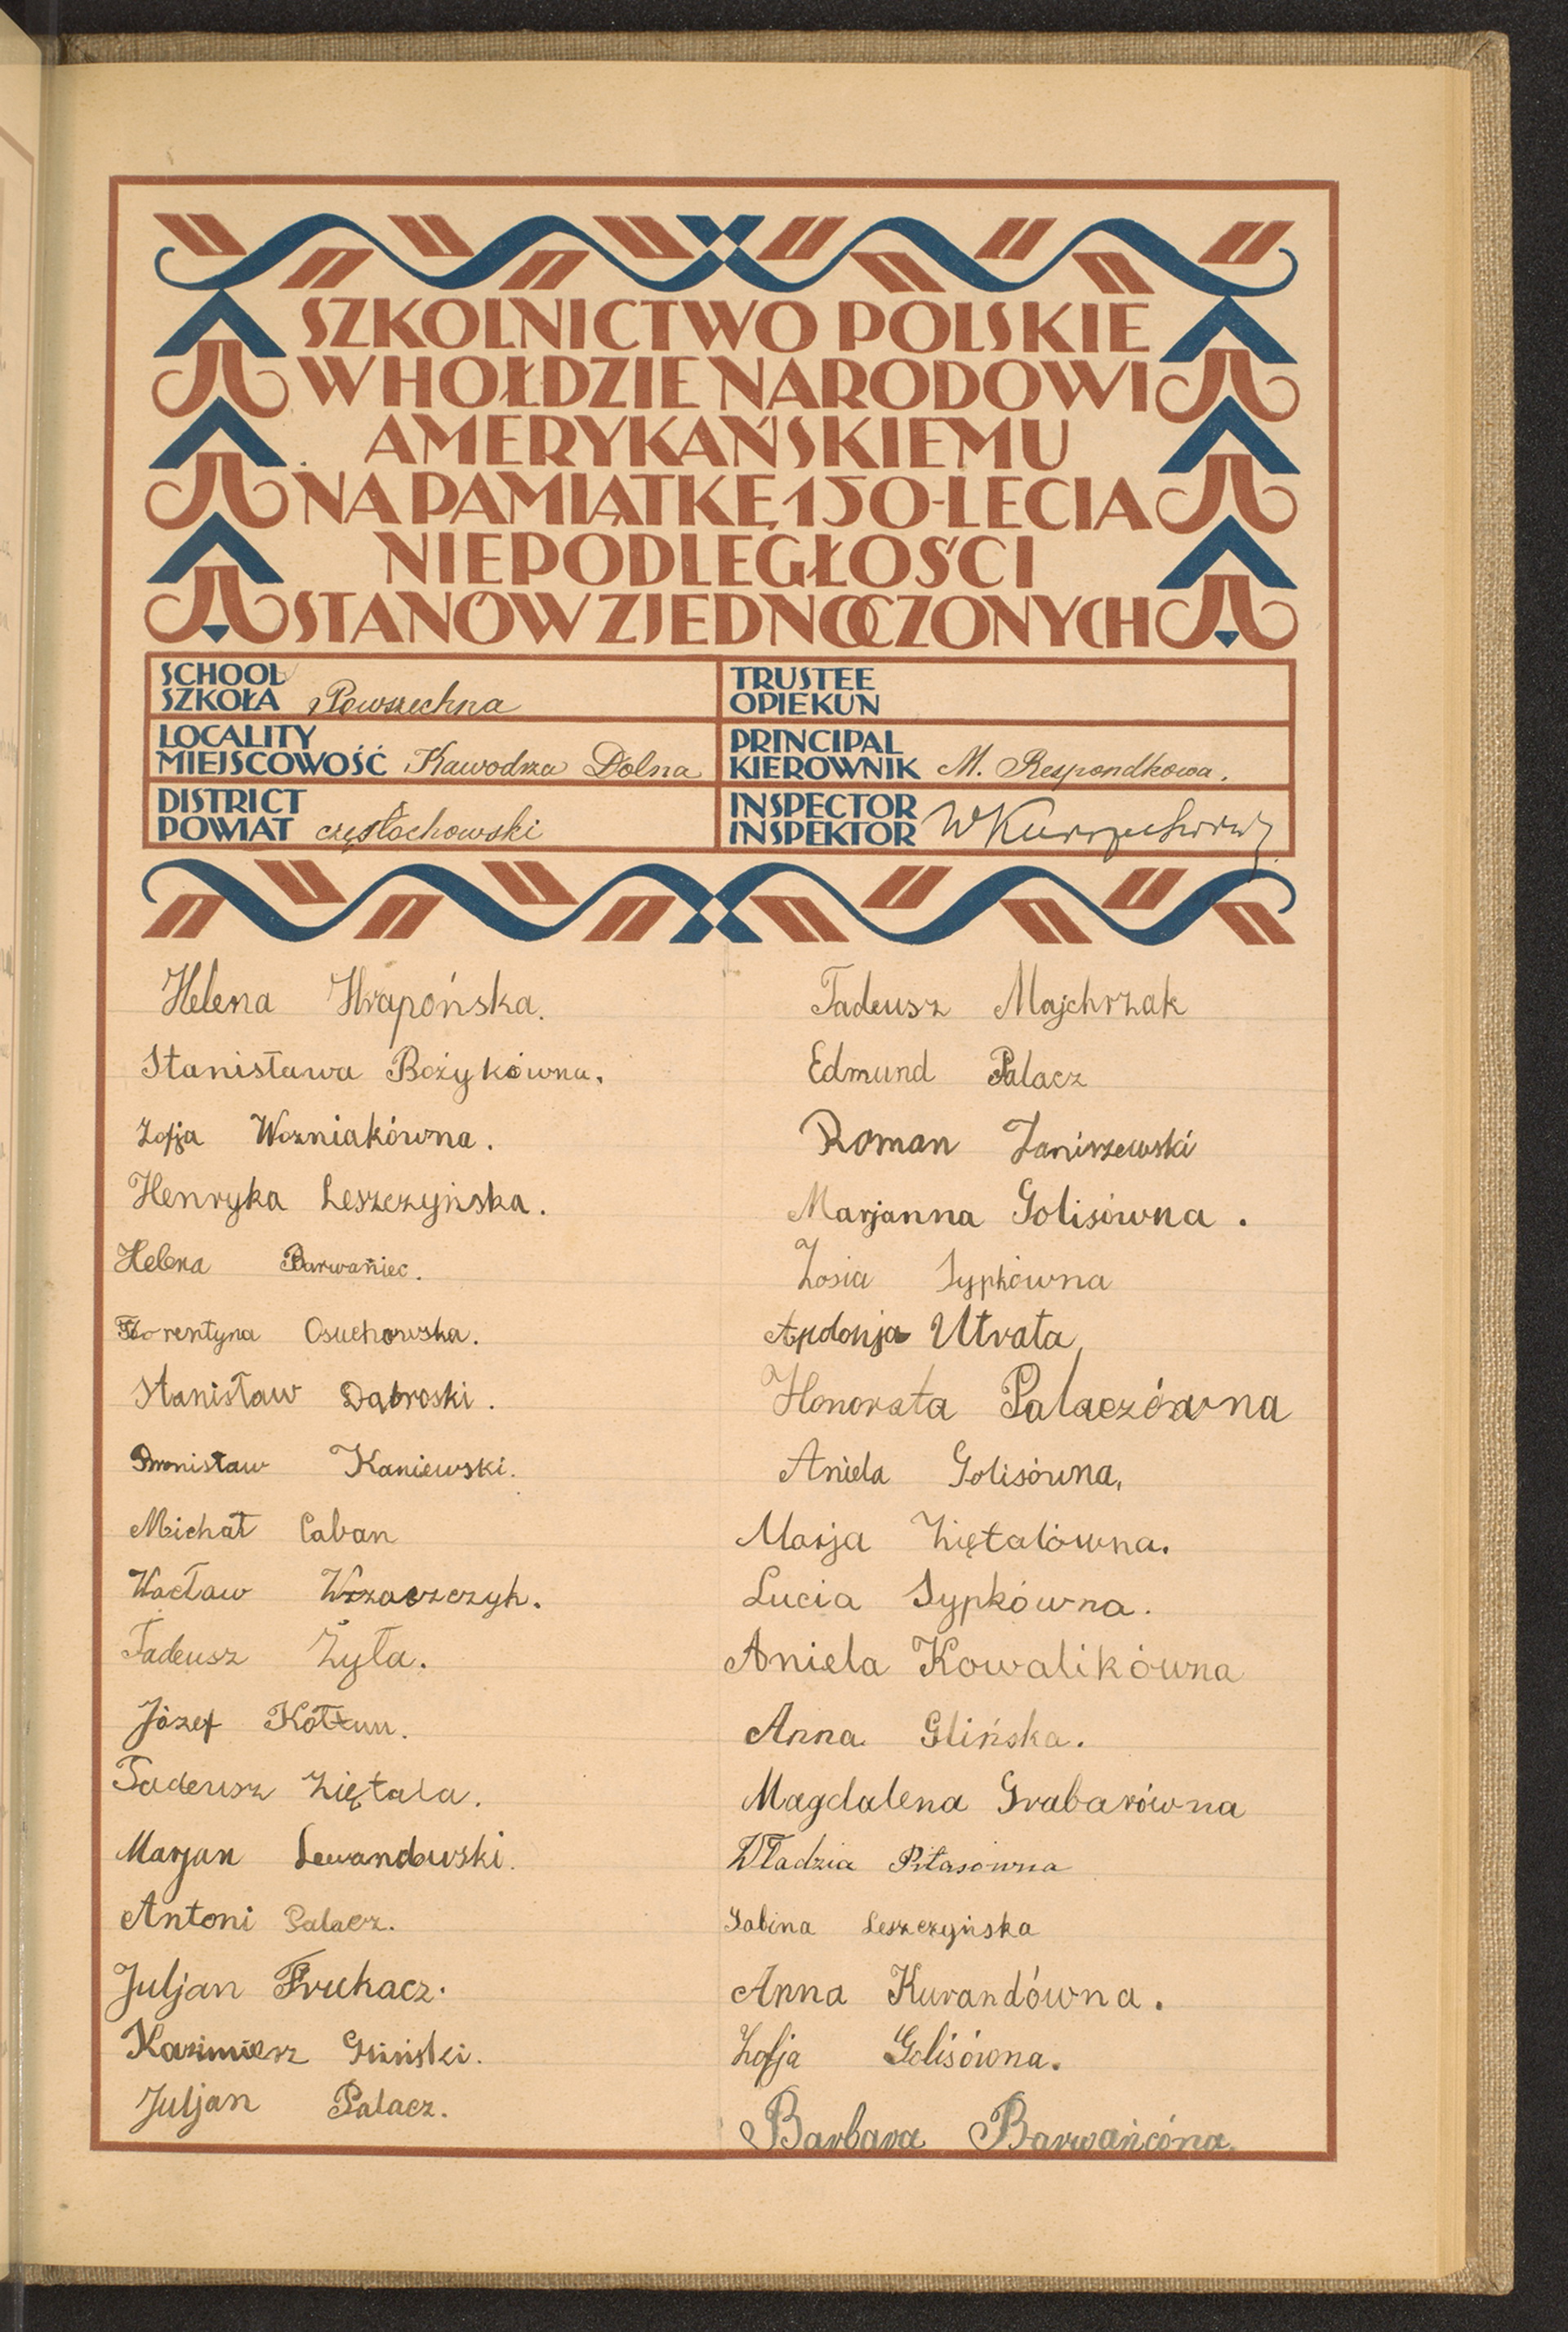 SZKOLNICTWO POLSKIE
W HOŁDZIE NARODOWI
AMERYKAŃSKIEMU
NA PAMIĄTKĘ 150-LECIA
NIEPODLEGŁOŚCI
STANÓW ZJEDNOCZONYCH
SCHOOL
SZKOŁA Powszechna
LOCALITY
MIEJSCOWOŚĆ Kawodrza Dolna
DISTRICT
POWIAT częstochowski
TRUSTEE
OPIEKUN
PRINCIPAL
KIEROWNIK M. Respondkowa.
INSPECTOR
INSPEKTOR
Helena Hrapońska.
Stanisława Bożykówna.
Zofja Wozniakówna.
Henryka Leszczyńska.
Helena Barwaniec.
Florentyna Osuchowska.
Stanisław Dąbroski.
Bronisław Kaniewski.
Michał Caban
Wacław Wrzaszczyk.
Tadeusz Żyła.
Józef Kołtun.
Tadeusz Ziętala.
Marjan Lewandowski.
Antoni Palacz.
Juljan Trukacz.
Kazimierz Gliński.
Juljan Palacz.
Tadeusz Majchrzak
Edmund Palacz
Roman Janiszewski
Marjanna Golisówna.
Zosia Sypkówna
Apolonja Utrata,
Honorata Palaczówna
Aniela Golisówna,
Marja Ziętalówna.
Lucia Sypkówna.
Aniela Kowalikówna
Anna Glińska.
Magdalena Grabarówna
Władzia Pitasówna
Sabina Leszczyńska
Anna Kurandówna.
Zofja Golisówna.
Barbara Barwańcóna.